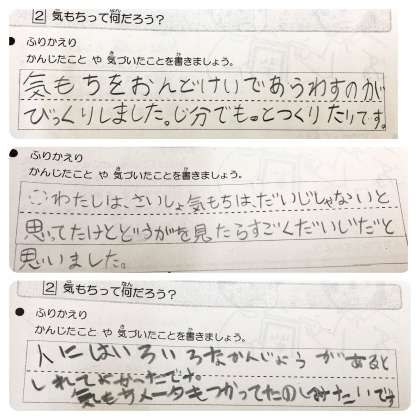 2 気もちって何だろう？
ふりかえり
かんじたこと や 気づいたことを書きましょう。
気もちをおんどけいであらわすのが
びっくりしました。じ分でも。とつくりたいです。
ふりかえり
かんじたこと や 気づいたことを書きましょう。
わたしは、さいしょ気もちは、だいじじゃないと
思ってたけとどうがを見たらすごくだいじだと
思いました。
2 気もちって何だろう？
ふりかえり
かんじたこと や 気づいたことを書きましょう。
人にはいろいろなかんじょうがあると
しれてよかったです。
気もちメータもつかってたのしみたいです